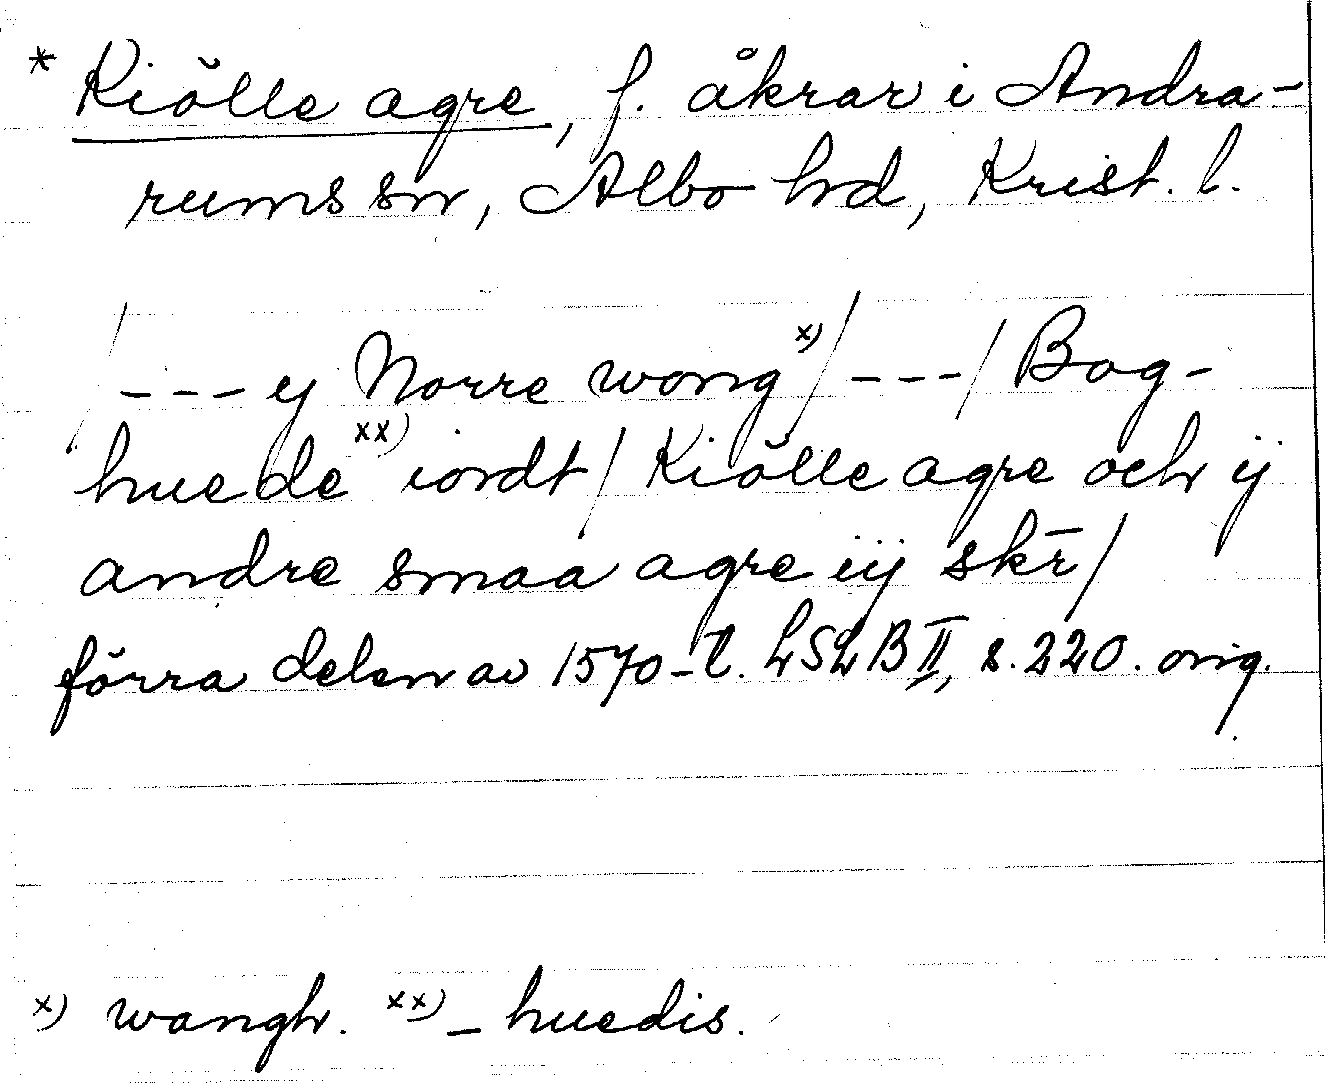 * Kiõlle agre, f. åkrar i Andra-
rums sn, Albo hd, Krist. l.
/ --- ej Norre wong x) / --- / Bog-
huede xx) iordt / Kiõlle agre och ij
andre smaa agre iij skr̄ /
förra delen av 1570-t. LSLB II, s. 220. orig.
x) wangh. xx) - huedis.